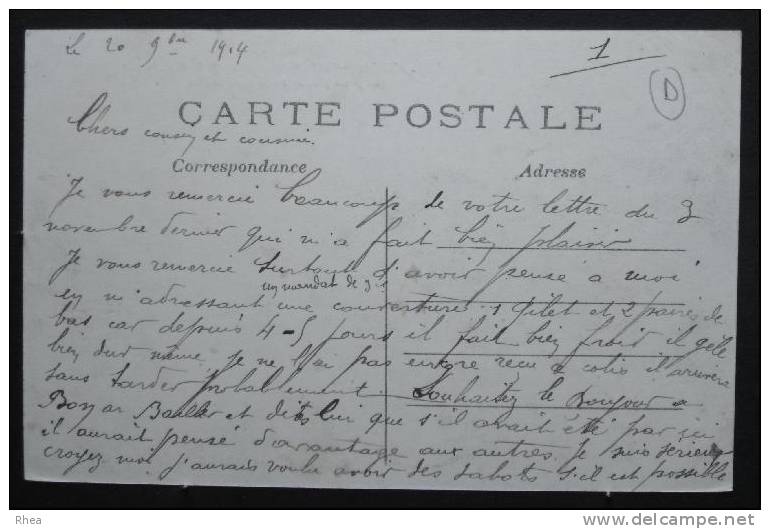 Le 20 9bre 1914
1
D
CARTE POSTALE
Chers cousin et cousine.
Correspondance
Adresse
Je vous remercie beaucoup de votre lettre du 3
novembre dernier qui m'a fait bien plaisir
Je vous remercie surtout d'avoir pensé a moi
un mandat de
en m'adressant une couverture 1 gilet et 2 paires de
bas car depuis 4-5 jours il fait bien froid il gèle
bien dur même je ne l'ai pas encore reçu ce colis il arrivera
sans tarder probablement. Souhaitez le bonjour a
et dites lui que s'il avait été par ici
il aurait pensé d'avantage aux autres. Je suis sérieux
croyez moi j'aurais voulu avoir des sabots s'il est possible
Rhea
www.delcampe.net